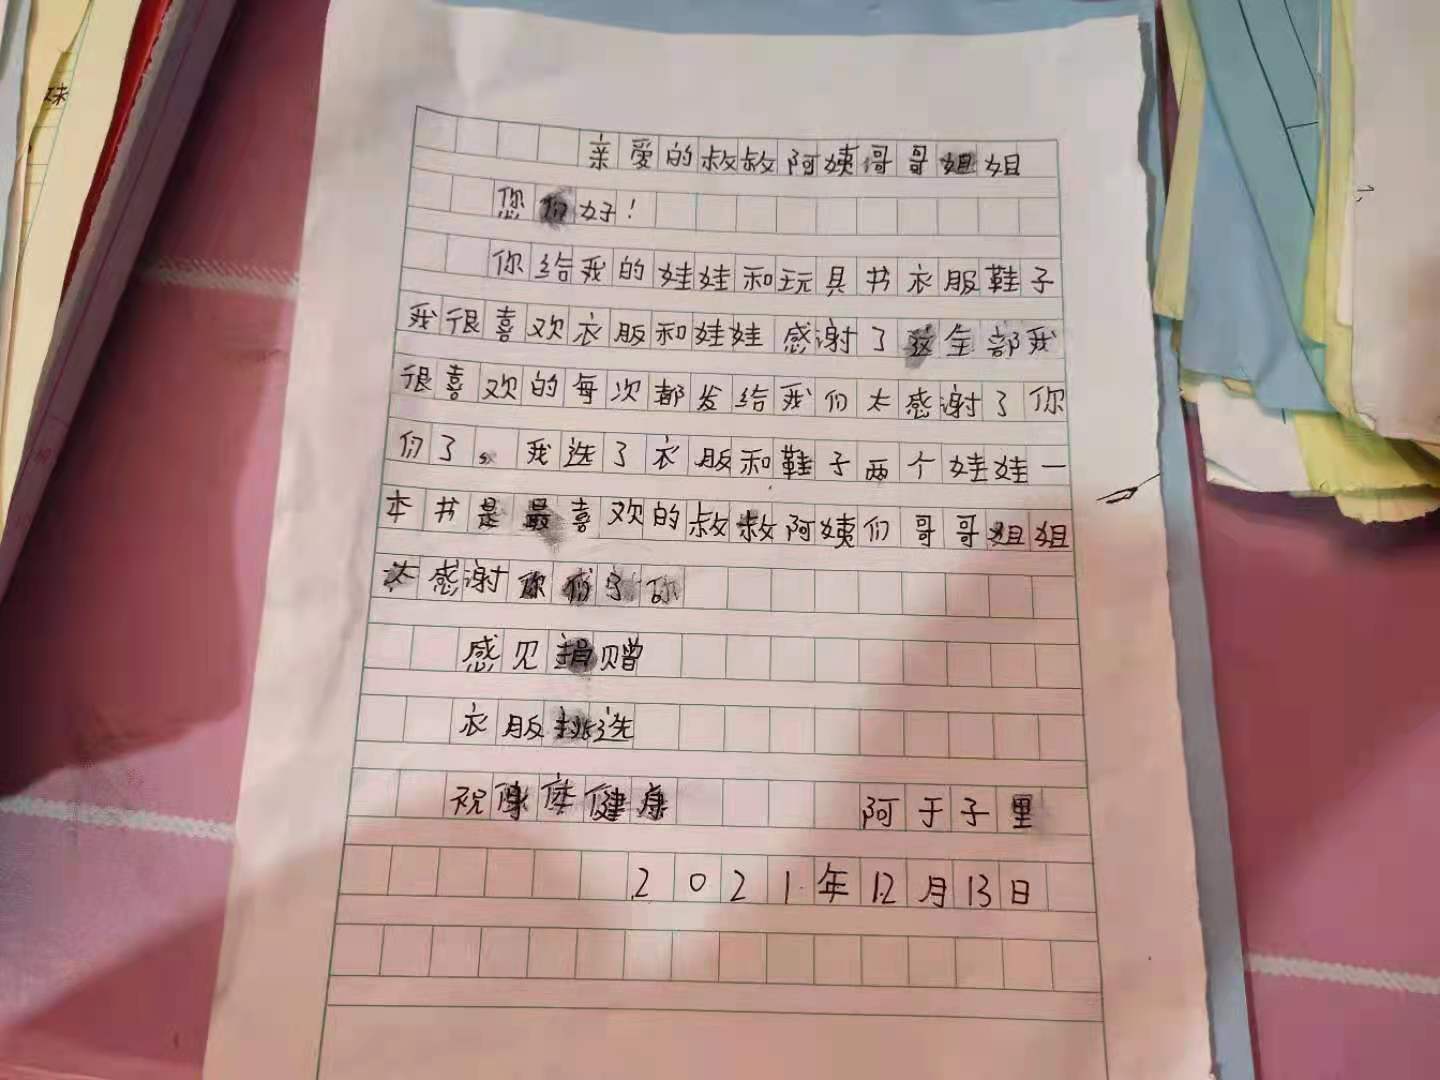 亲爱的叔叔阿姨哥哥姐姐
您们好!
你给我的娃娃和玩具书衣服鞋子
我很喜欢衣服和娃娃感谢了这全部我
很喜欢的每次都发给我们太感谢了你
们了。我选了衣服和鞋子两个娃娃一
本书是最喜欢的叔叔阿姨们哥哥姐姐
太感谢你们了你
感见捐赠
衣服挑选
祝体健康
阿于子里
2021年12月13日
妹